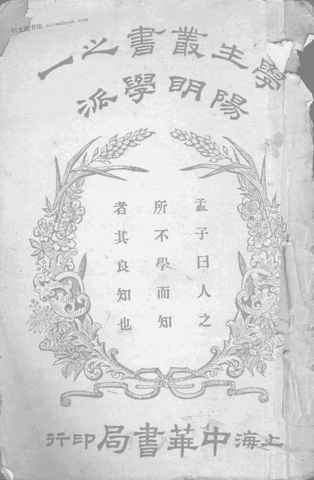 學生叢書之一
陽明學派
孟子曰人之
所不學而知
者其良知也
上海中華書局印行